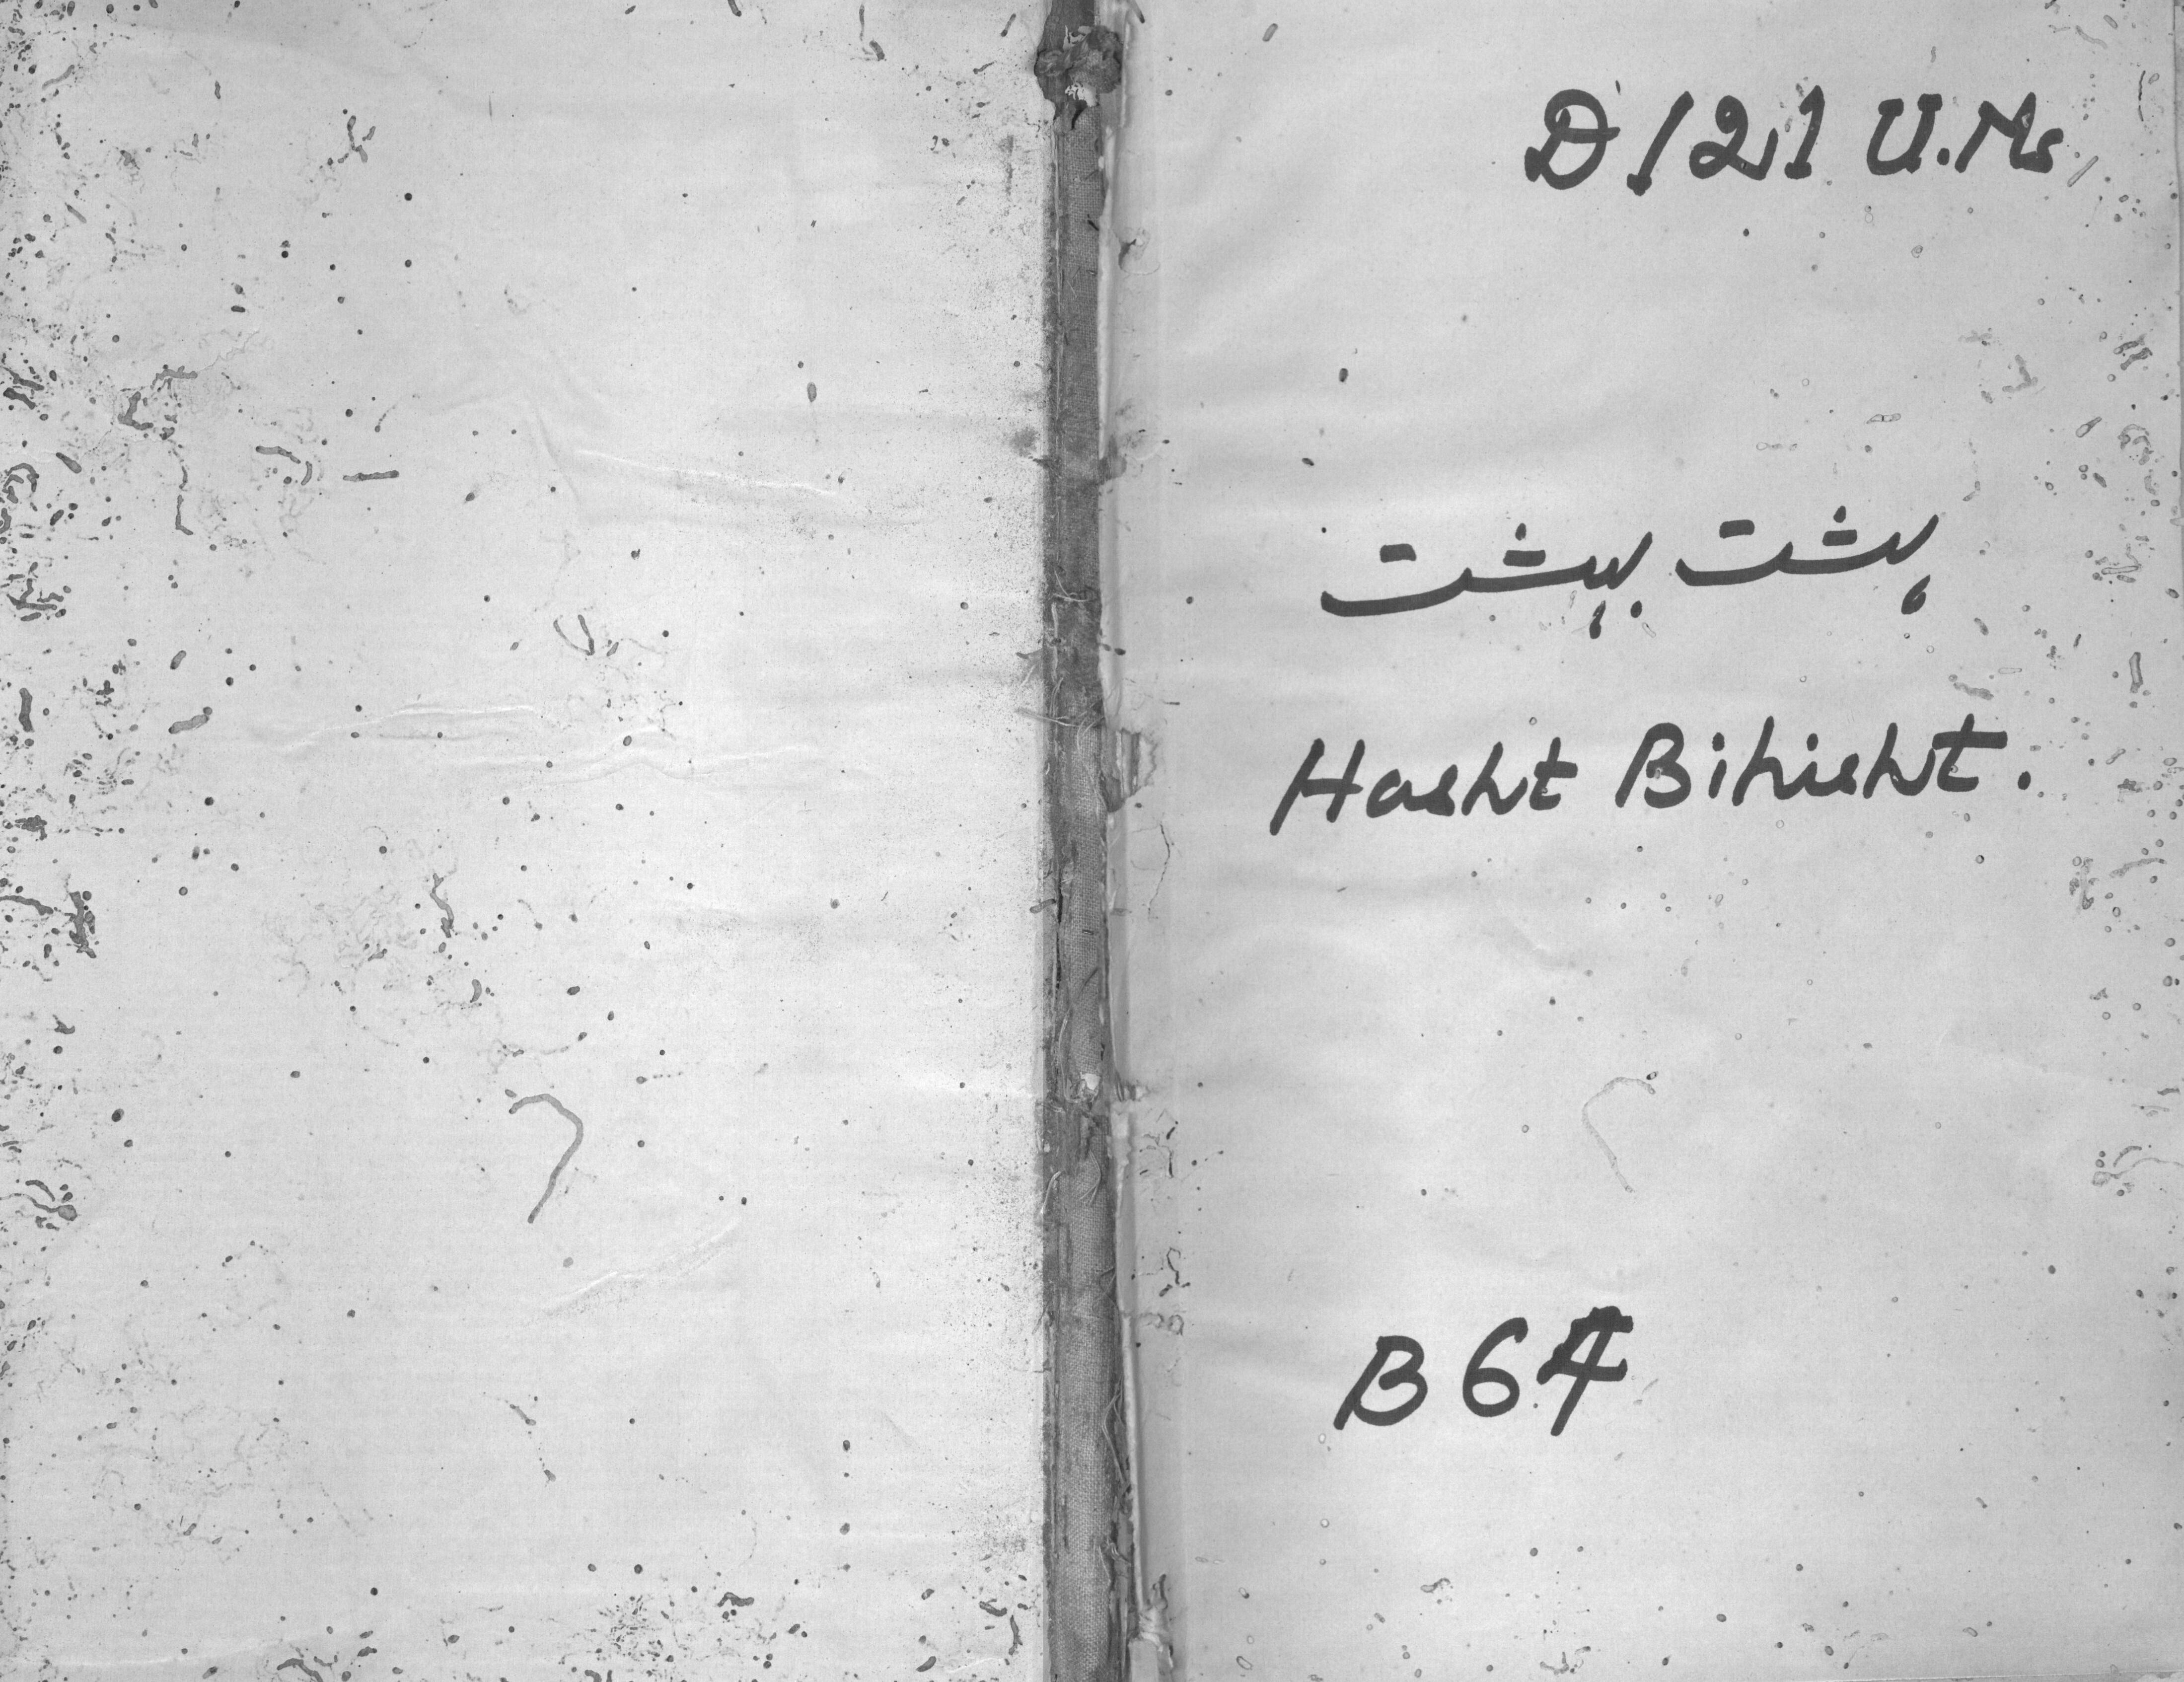 D/2,1 U.Ms
ہشت بہشت
Hasht Bihisht.
B 64